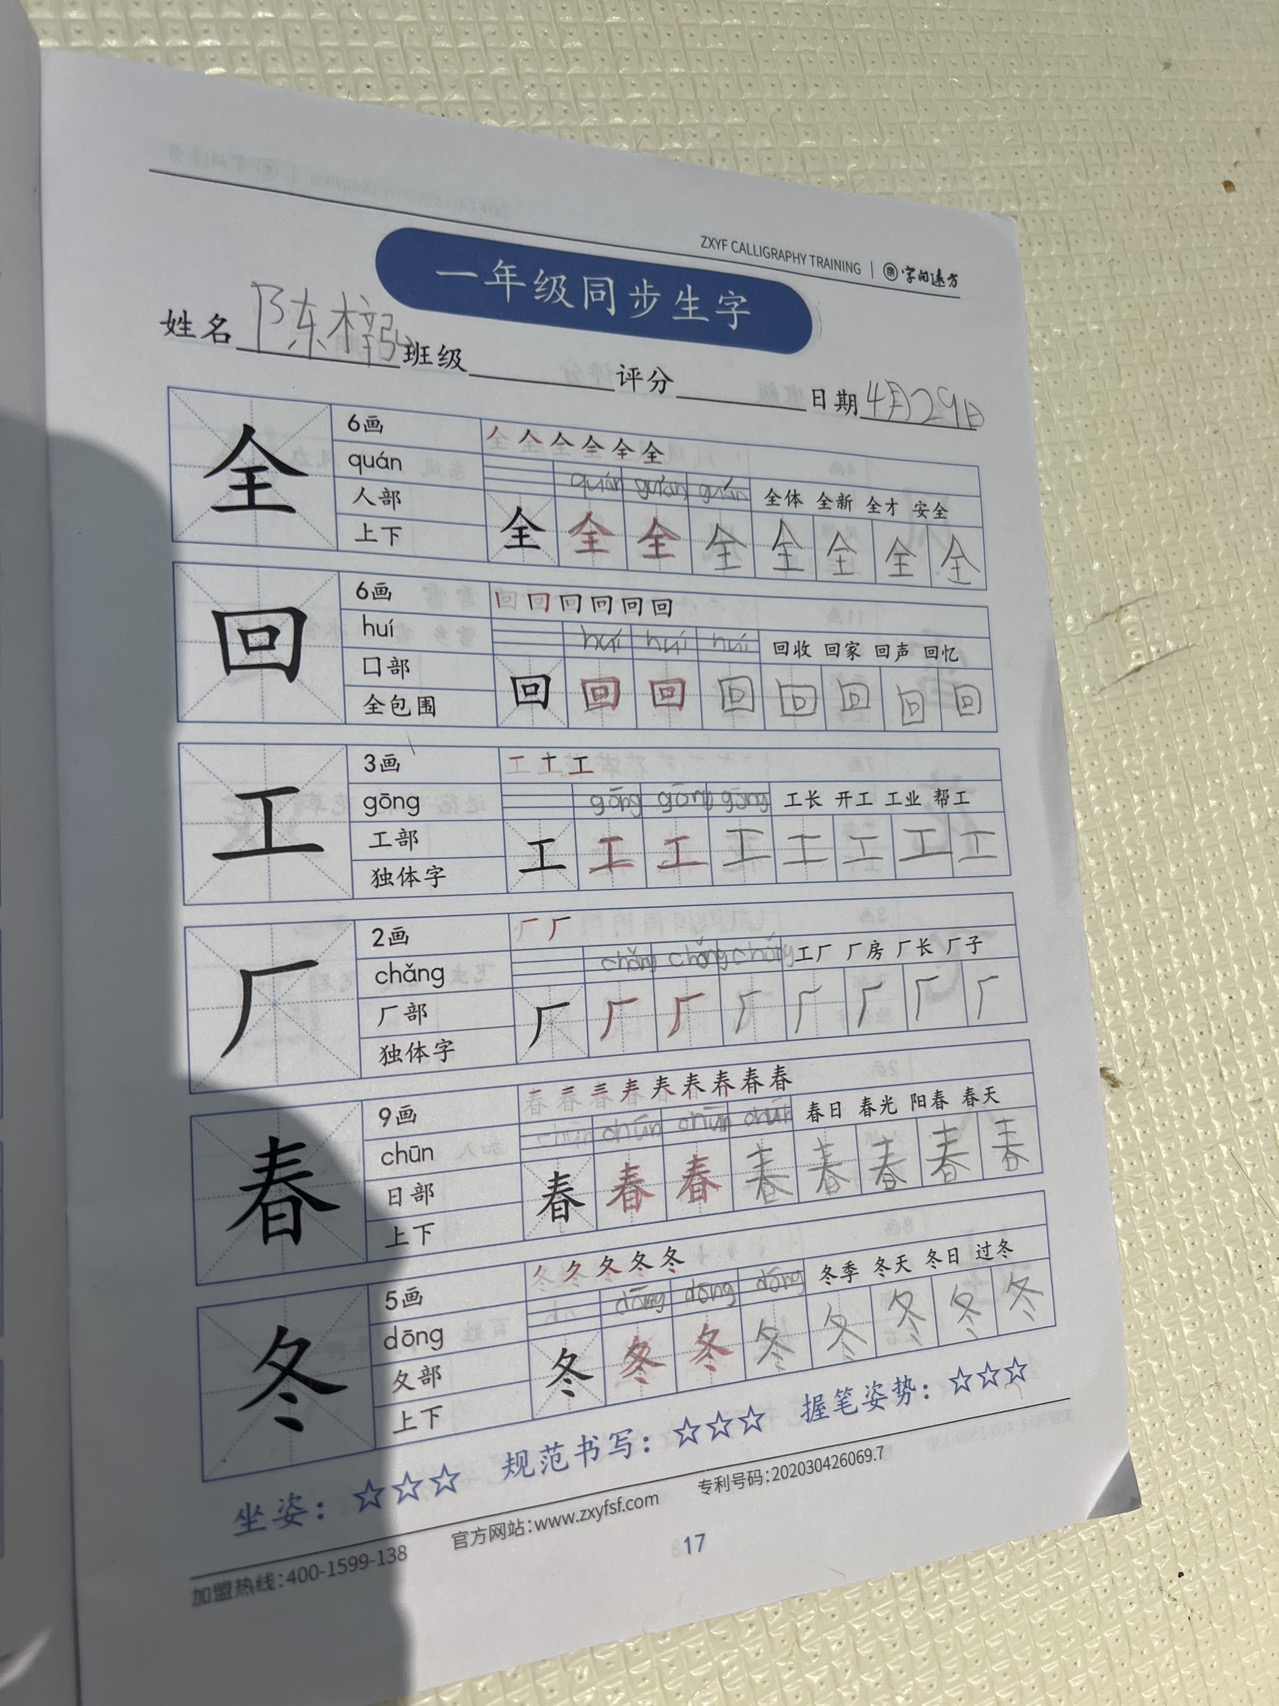 ZXYF CALLIGRAPHY TRAINING | 字间速方
一年级同步生字
姓名 陈梓 班级 评分 日期 4月29日
全
6画
quán
人部
上下
全 全 全 全 全 全
quán quán quán
全体 全新 全才 安全
全 全 全 全 全 全 全 全
回
6画
huí
口部
全包围
回 回 回 回 回 回
huí huí huí
回收 回家 回声 回忆
回 回 回 回 回 回 回 回
工
3画
gōng
工部
独体字
工 工 工
gōng gōng gōng
工长 开工 工业 帮工
工 工 工 工 工 工 工 工
厂
2画
chǎng
厂部
独体字
厂 厂
chǎng chǎng chǎng
工厂 厂房 厂长 厂子
厂 厂 厂 厂 厂 厂 厂 厂
春
9画
chūn
日部
上下
春 春 春 春 春 春 春 春 春
chūn chūn chūn chūn
春日 春光 阳春 春天
春 春 春 春 春 春 春 春
冬
5画
dōng
夂部
上下
冬 冬 冬 冬 冬
dōng dōng dōng
冬季 冬天 冬日 过冬
冬 冬 冬 冬 冬 冬 冬 冬
坐姿：☆☆☆ 规范书写：☆☆☆ 握笔姿势：☆☆☆
加盟热线：400-1599-138 官方网站：www.zxyfsf.com 专利号码：202030426069.7
17